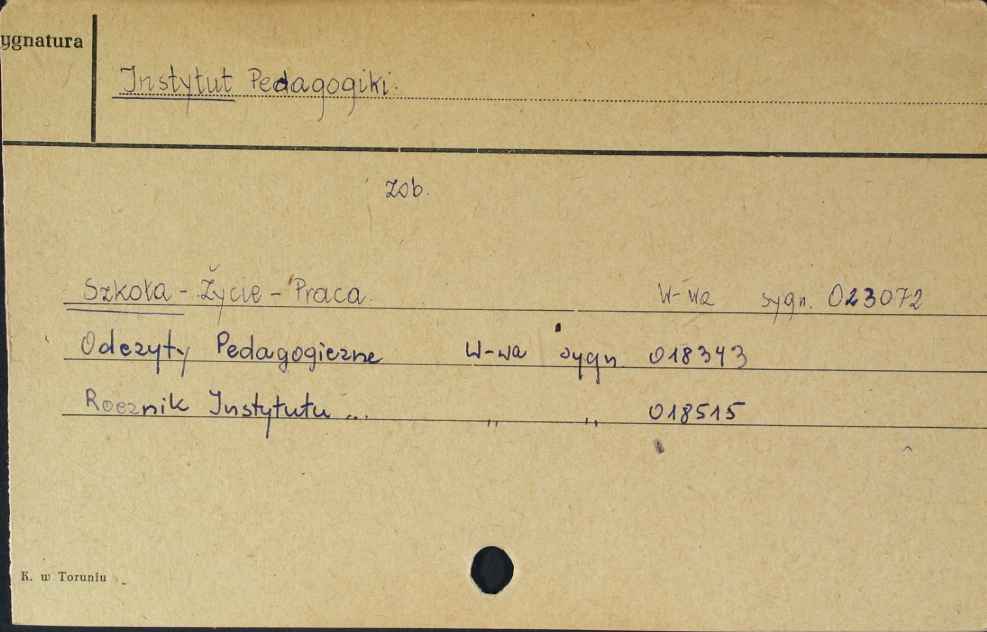 ygnatura
Instytut Pedagogiki.
zob.
Szkoła - Życie - Praca W-wa sygn. 023072
Odczyty Pedagogiczne W-wa sygn. 018343
Rocznik Instytutu ... " " 018515
K. w Toruniu